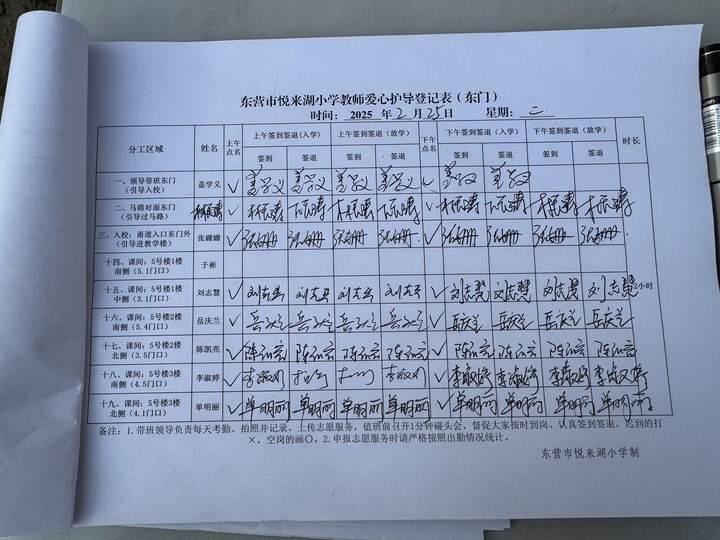 东营市悦来湖小学教师爱心护导登记表（东门）
时间： 2025 年 2 月 25 日 星期： 二
分工区域 姓名 上午点名 上午签到签退（入学） 上午签到签退（放学） 下午点名 下午签到签退（入学） 下午签到签退（放学） 时长
签到 签退 签到 签退 签到 签退 签到 签退
一、领导带班东门（引导入校） 盖学义 ✓ 盖学义 盖学义 盖学义 盖学义 ✓ 盖学义 盖学义
二、马路对面东门（引导过马路） ✓ ✓
三、入校：甬道入口东门外（引导进教学楼） 张姗姗 ✓ 张姗姗 张姗姗 张姗姗 张姗姗 ✓ 张姗姗 张姗姗 张姗姗 张姗姗
十四、课间：5号楼1楼南侧（5.1门口） 于彬
十五、课间：5号楼1楼中侧（3.1门口） 刘志慧 ✓ 刘志慧 刘志慧 刘志慧 刘志慧 ✓ 刘志慧 刘志慧 刘志慧 刘志慧 2小时
十六、课间：5号楼2楼南侧（5.4门口） 岳庆兰 ✓ 岳庆兰 岳庆兰 岳庆兰 岳庆兰 ✓ 岳庆兰 岳庆兰 岳庆兰 岳庆兰
十七、课间：5号楼2楼北侧（3.5门口） 陈凯亮 ✓ 陈凯亮 陈凯亮 陈凯亮 陈凯亮 ✓ 陈凯亮 陈凯亮 陈凯亮 陈凯亮
十八、课间：5号楼3楼南侧（4.5门口） 李淑婷 ✓ 李淑婷 ✓ 李淑婷 李淑婷 李淑婷 李淑婷
十九、课间：5号楼3楼北侧（4.1门口） 单明丽 ✓ 单明丽 单明丽 单明丽 单明丽 ✓ 单明丽 单明丽 单明丽 单明丽
备注：1.带班领导负责每天考勤、拍照并记录、上传志愿服务，值班前召开1分钟碰头会，督促大家按时到岗、认真签到签退，迟到的打
×，空岗的画〇。2.申报志愿服务时请严格按照出勤情况统计。
东营市悦来湖小学制